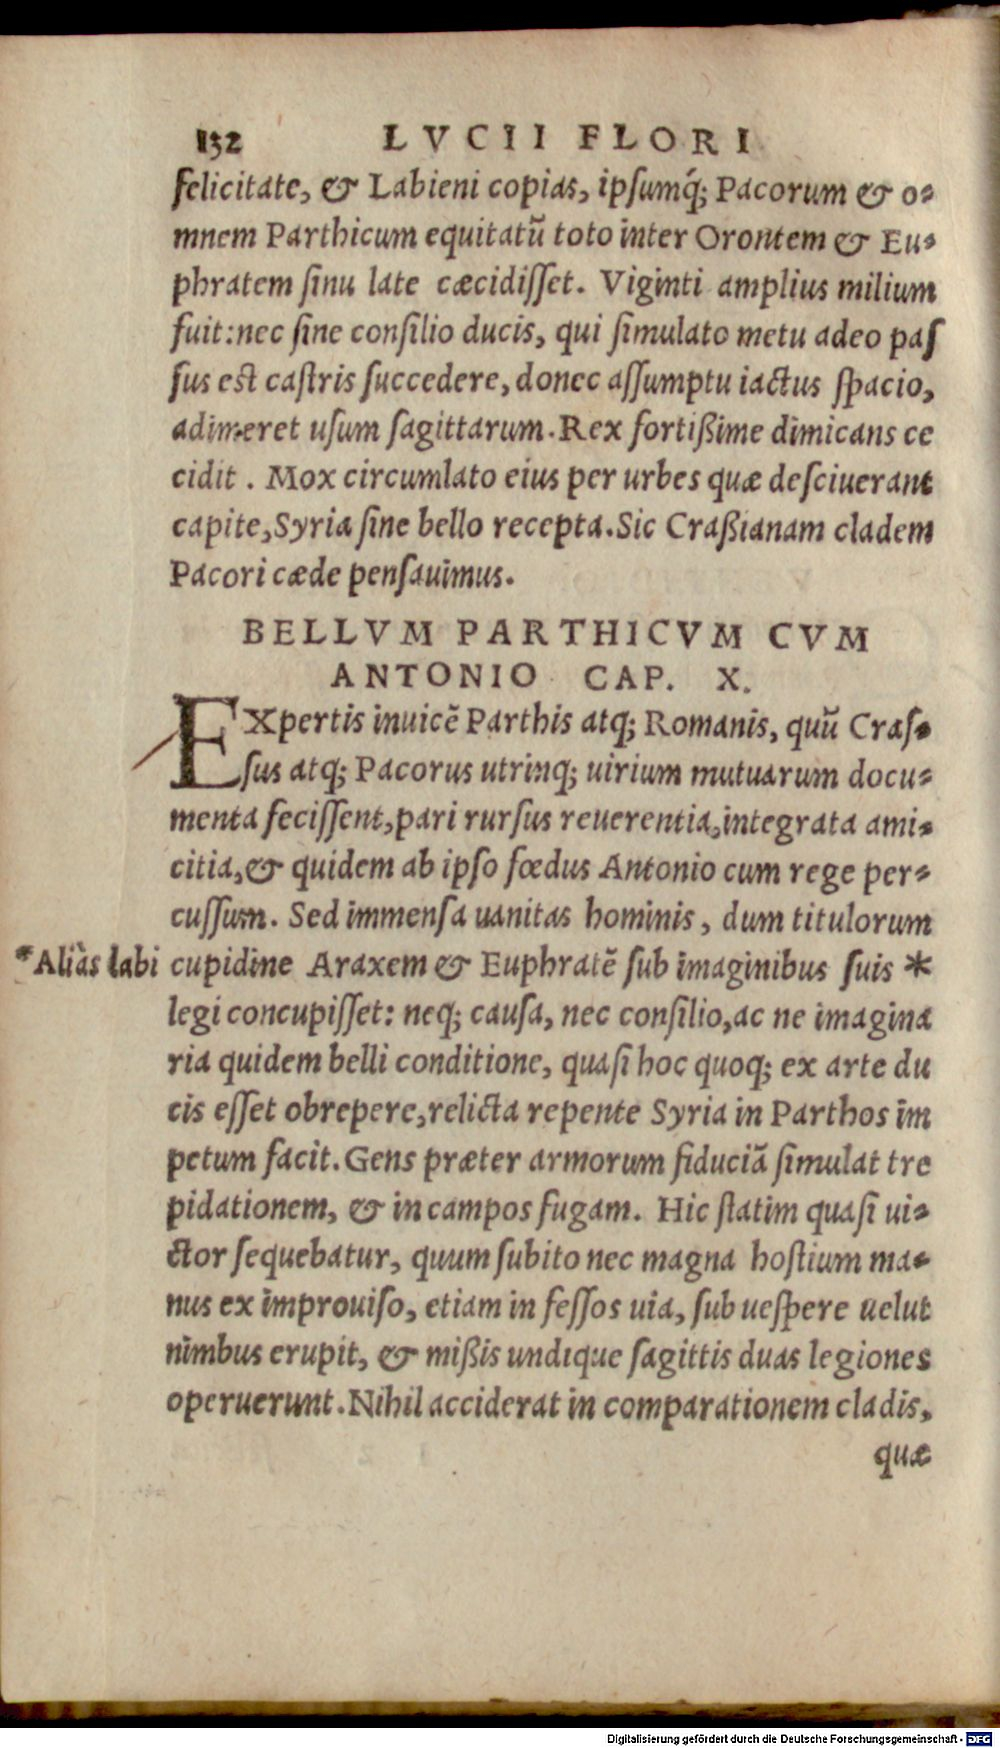 132 LVCII FLORI
felicitate, & Labieni copias, ipsumq́; Pacorum & o-
mnem Parthicum equitatũ toto inter Orontem & Eu-
phratem sinu late cæcidisset. Viginti amplius milium
fuit: nec sine consilio ducis, qui simulato metu adeo pas
sus est castris succedere, donec assumptu iactus spacio,
adimeret usum sagittarum. Rex fortißime dimicans ce
cidit. Mox circumlato eius per urbes quæ desciuerant
capite, Syria sine bello recepta. Sic Craßianam cladem
Pacori cæde pensauimus.
BELLVM PARTHICVM CVM
ANTONIO CAP. X.
EXpertis inuicẽ Parthis atq; Romanis, quũ Cras-
sus atq; Pacorus utrinq; uirium mutuarum docu-
menta fecissent, pari rursus reuerentia, integrata ami-
citia, & quidem ab ipso fœdus Antonio cum rege per-
cussum. Sed immensa uanitas hominis, dum titulorum
*Aliàs labi cupidine Araxem & Euphratẽ sub imaginibus suis *
legi concupisset: neq; causa, nec consilio, ac ne imagina
ria quidem belli conditione, quasi hoc quoq; ex arte du
cis esset obrepere, relicta repente Syria in Parthos im
petum facit. Gens præter armorum fiduciã simulat tre
pidationem, & in campos fugam. Hic statim quasi ui-
ctor sequebatur, quum subito nec magna hostium ma-
nus ex improuiso, etiam in fessos uia, sub uespere uelut
nimbus erupit, & mißis undique sagittis duas legiones
operuerunt. Nihil acciderat in comparationem cladis,
quæ
Digitalisierung gefördert durch die Deutsche Forschungsgemeinschaft - DFG